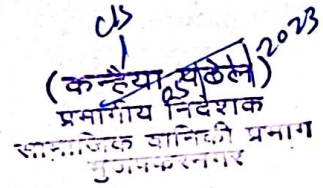 2023
(कन्हैया पटेल)
प्रभागीय निदेशक
सामाजिक वानिकी प्रभाग
मुजफ्फरनगर